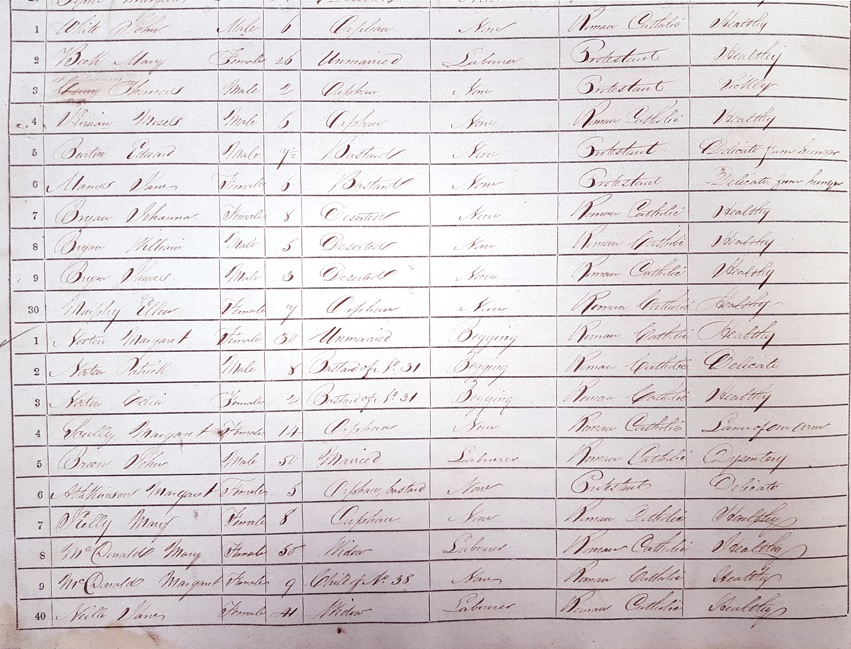 1 White John Male 6 Orphan None Roman Catholic Healthy
2 Book Mary Female 26 Unmarried Labourer Protestant Healthy
3 Thomas Male 2 Orphan None Protestant Sickly
4 Male 6 Orphan None Roman Catholic Healthy
5 Burton Edward Male Bastard None Protestant Delicate from hunger
6 Jane Female 6 Bastard None Protestant Delicate from hunger
7 Bryan Johanna Female 8 Deserted None Roman Catholic Healthy
8 Bryan William Male 5 Deserted None Roman Catholic Healthy
9 Bryan James Male 3 Deserted None Roman Catholic Healthy
30 Murphy Ellen Female 7 Orphan None Roman Catholic Healthy
1 Norton Margaret Female 30 Unmarried Begging Roman Catholic Healthy
2 Norton Patrick Male 8 Bastard of No. 31 Begging Roman Catholic Delicate
3 Norton Celia Female 2 Bastard of No. 31 Begging Roman Catholic Healthy
4 Scully Margaret Female 14 Orphan None Roman Catholic Lame of one
5 Breen John Male 50 Married Labourer Roman Catholic Dysentery
6 Athkinson Margaret Female 5 Orphan, bastard None Protestant Delicate
7 Kelly Mary Female 8 Orphan None Roman Catholic Healthy
8 McDonald Mary Female 50 Widow Labourer Roman Catholic Healthy
9 McDonald Margaret Female 9 Child of No. 38 None Roman Catholic Healthy
40 Neille Jane Female 41 Widow Labourer Roman Catholic Healthy